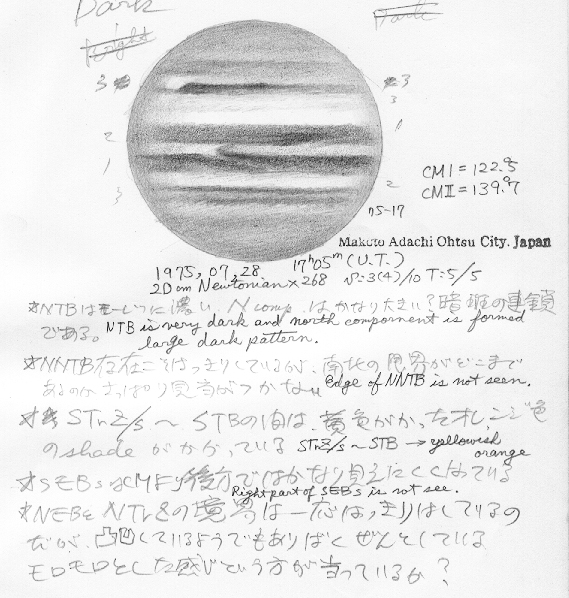 Dark
bright
Dark
3
3
3
2
1
1
3
2
CMI = 122.°5
CMII = 139.°7
75-17
Makoto Adachi Ohtsu City. Japan
1975, 07, 28. 17h05m (U.T.)
20 cm Newtonian × 268 S=3(4)/10 T=5/5
※NTBは 濃い N comp. はかなり大きい 暗斑の連鎖
である。 NTB is very dark and north component is formed
large dark pattern.
※NNTB存在こそはっきりしているが、南北の限界がどこまで
あるのか さっぱり見当がつかない edge of NNTB is not seen.
※ STrZ/s ~ STBの間は、黄色がかったオレンジ色
のshadeがかかっている STrZ/s ~ STB → yellowish
orange
※SEBsは 後方ではかなり見えにくくなっている
Right part of SEBs is not see.
※NEBと の境界は一応はっきりはしているの
だが、凸凹しているようでもありばくぜんとしている
モロモロとした感じという方が当っているか?